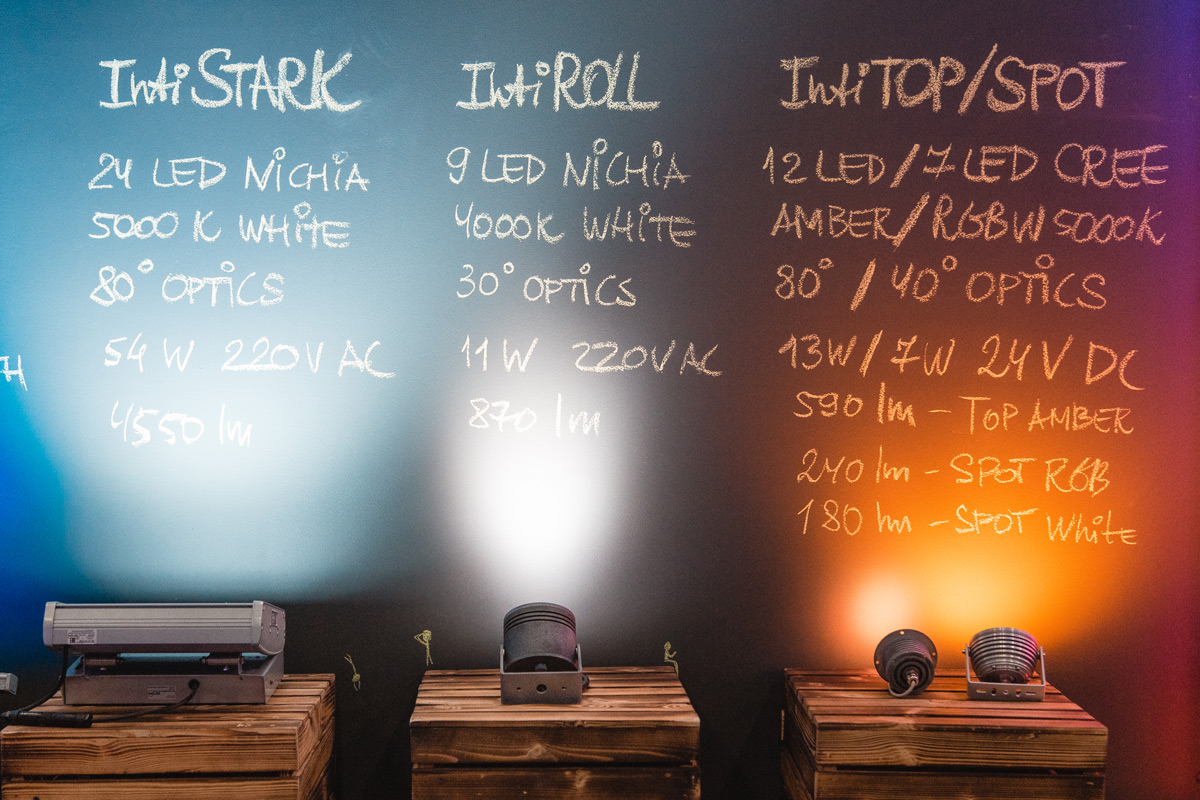 IntiSTARK
24 LED NiCHiA
5000 K WHiTE
80° OPTiCS
54 W 220V AC
4550 lm
IntiROLL
9 LED NiCHiA
4000K WHiTE
30° OPTiCS
11W 220V AC
870 lm
IntiTOP/SPOT
12 LED/7 LED CREE
AMBER/RGBW 5000K
80°/40° OPTiCS
13W/7W 24V DC
590 lm - TOP AMBER
240 lm - SPOT RGB
180 lm - SPOT White